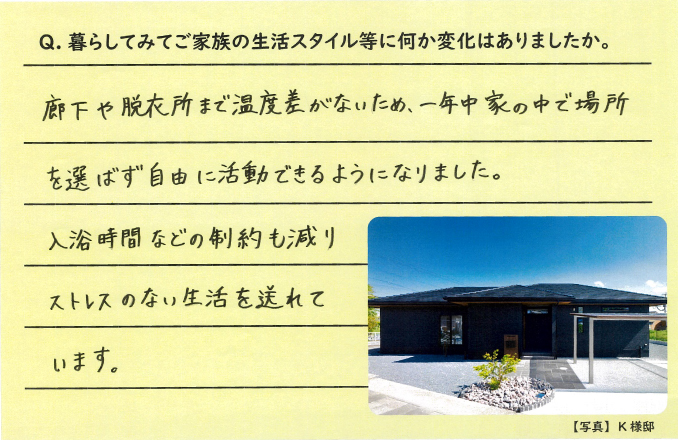 Q. 暮らしてみてご家族の生活スタイル等に何か変化はありましたか。
廊下や脱衣所まで温度差がないため、一年中家の中で場所
を選ばず自由に活動できるようになりました。
入浴時間などの制約も減り
ストレスのない生活を送れて
います。
【写真】K様邸